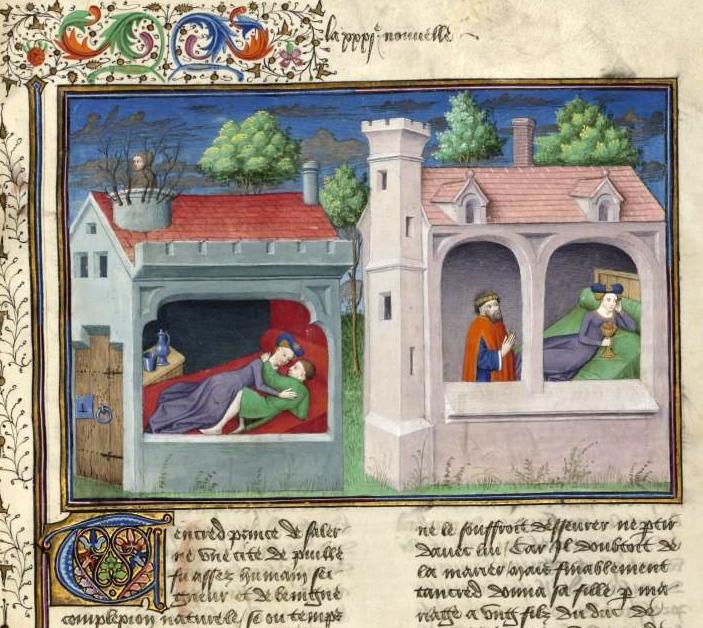 la xxxi^e nouvelle
Tancred prince de saler
ne une cite de puille
fu assez humain sei
gneur et de benigne
complexion naturele / se ou temps
ne le souffroit dessevrer ne partir
davec lui / Car il doubtoit de
la marier mais finablement
tancred donna sa fille par ma
riage a ung filz du duc de